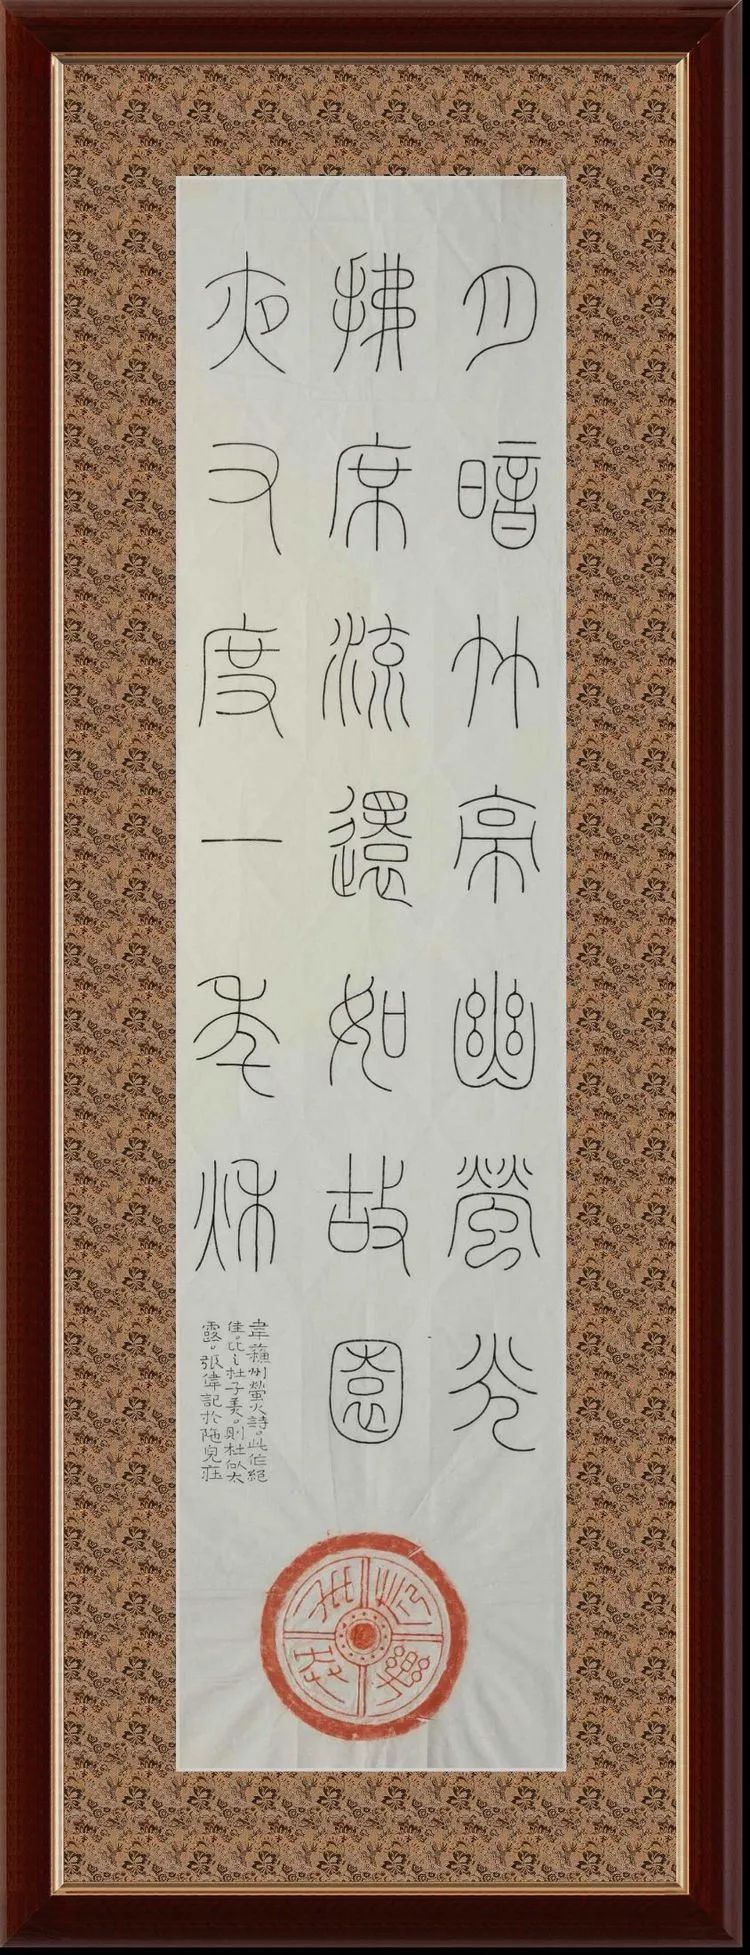 月暗竹亭幽螢光
拂席流還如故園
夜又度一年秌
韋蘇州螢火詩。此作絕
佳。比之杜子美。則杜似太
露。張偉記於